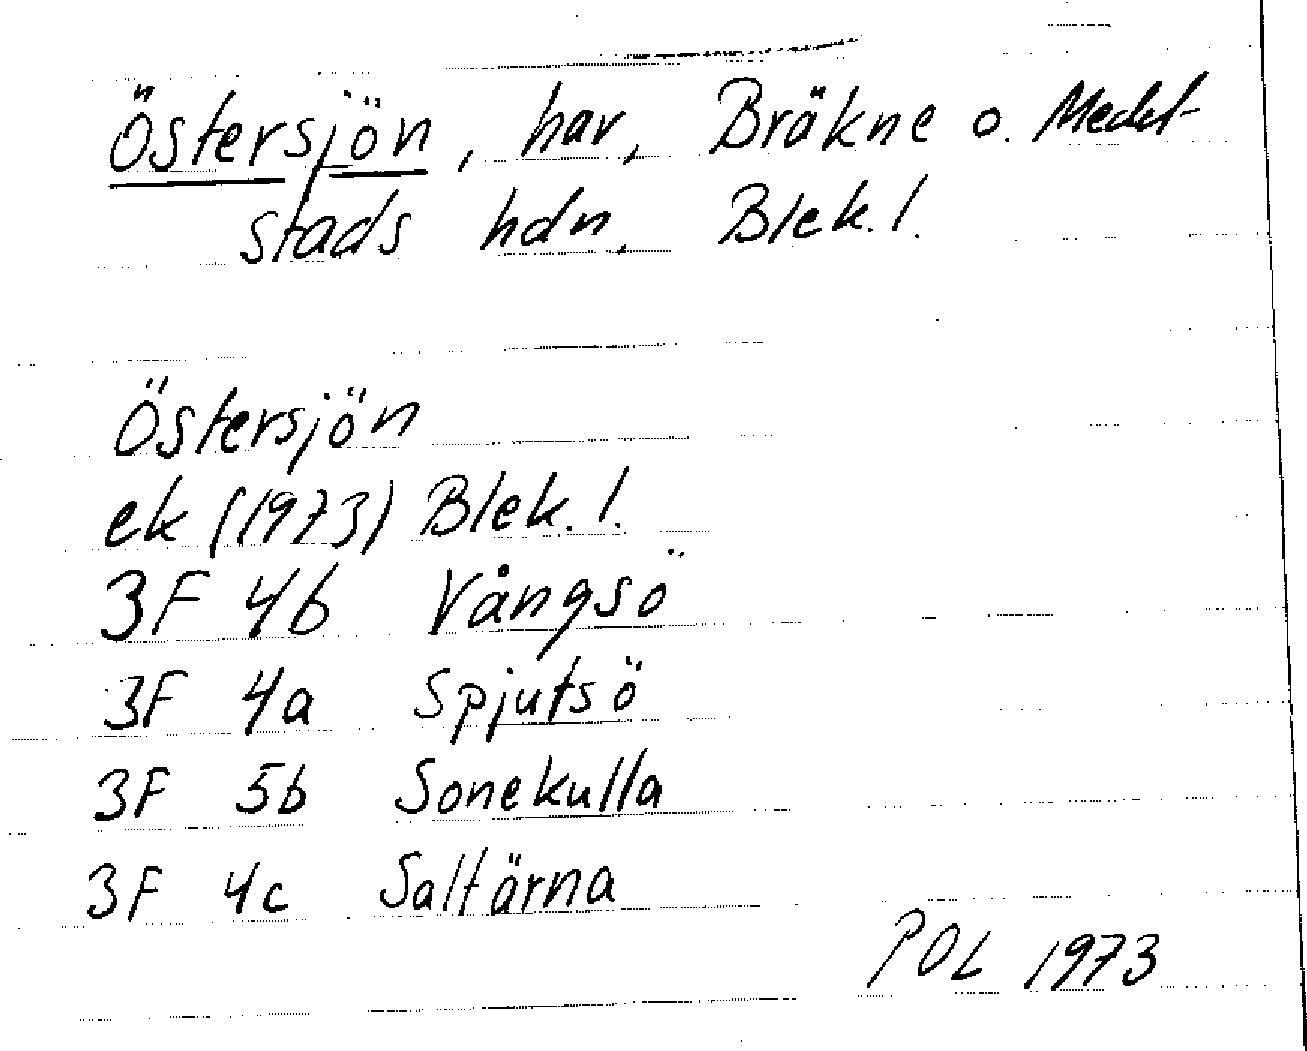 Östersjön, hav, Bräkne o. Medel-
stads hdn, Blek. l.
Östersjön
ek (1973) Blek. l.
3F 4b Vångsö
3F 4a Spjutsö
3F 5b Sonekulla
3F 4c Saltärna
POL 1973